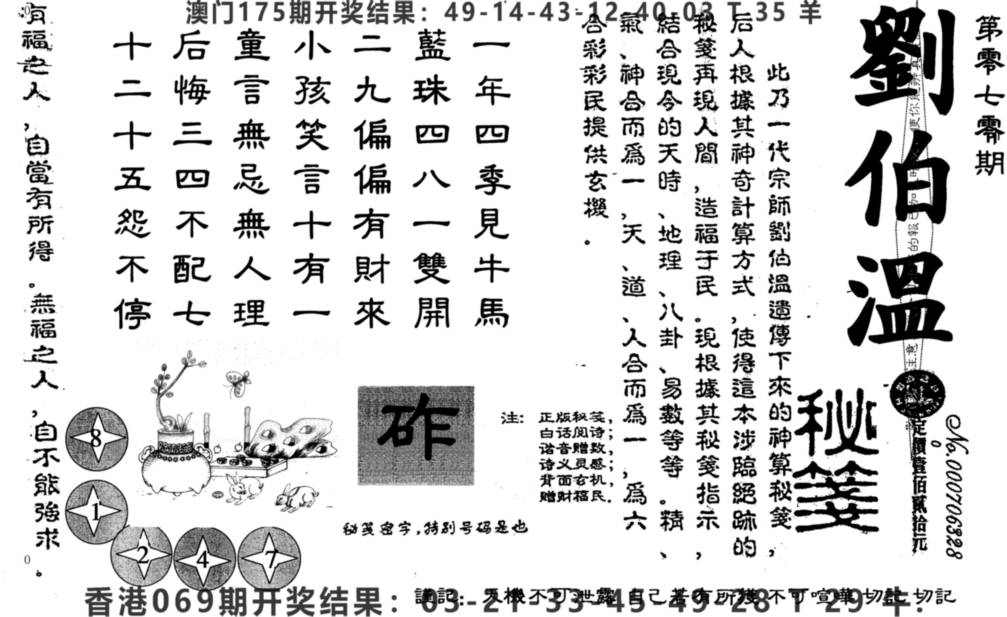 澳门175期开奖结果：49-14-43-12-40-03 T 35 羊
第零七零期
劉伯溫
秘箋
No.0007706328
定價壹佰貳拾元
此乃一代宗師劉伯溫遺傳下來的神算秘箋，
后人根據其神奇計算方式，使得這本涉臨絕跡的
秘箋再現人間，造福于民。現根據其秘箋指示，
結合現今的天時、地理、八卦、易數等等。精、
氣、神合而爲一，天、道、人合而爲一，爲六
合彩彩民提供玄機。
一年四季見牛馬
藍珠四八一雙開
二九偏偏有財來
小孩笑言十有一
童言無忌無人理
后悔三四不配七
十二十五怨不停
有福之人，自當有所得。無福之人，自不能強求。
8
1
2
4
7
砟
注：正版秘笺，
白话阅诗；
谐音赠数，
诗义灵感；
背面玄机，
赠财福民．
秘笺密字，特别号码是也
謹記：天機不可泄露 自己若有所獲 不可喧華 切記 切記
香港069期开奖结果：03-21-33-45-49-28 T 29 牛.